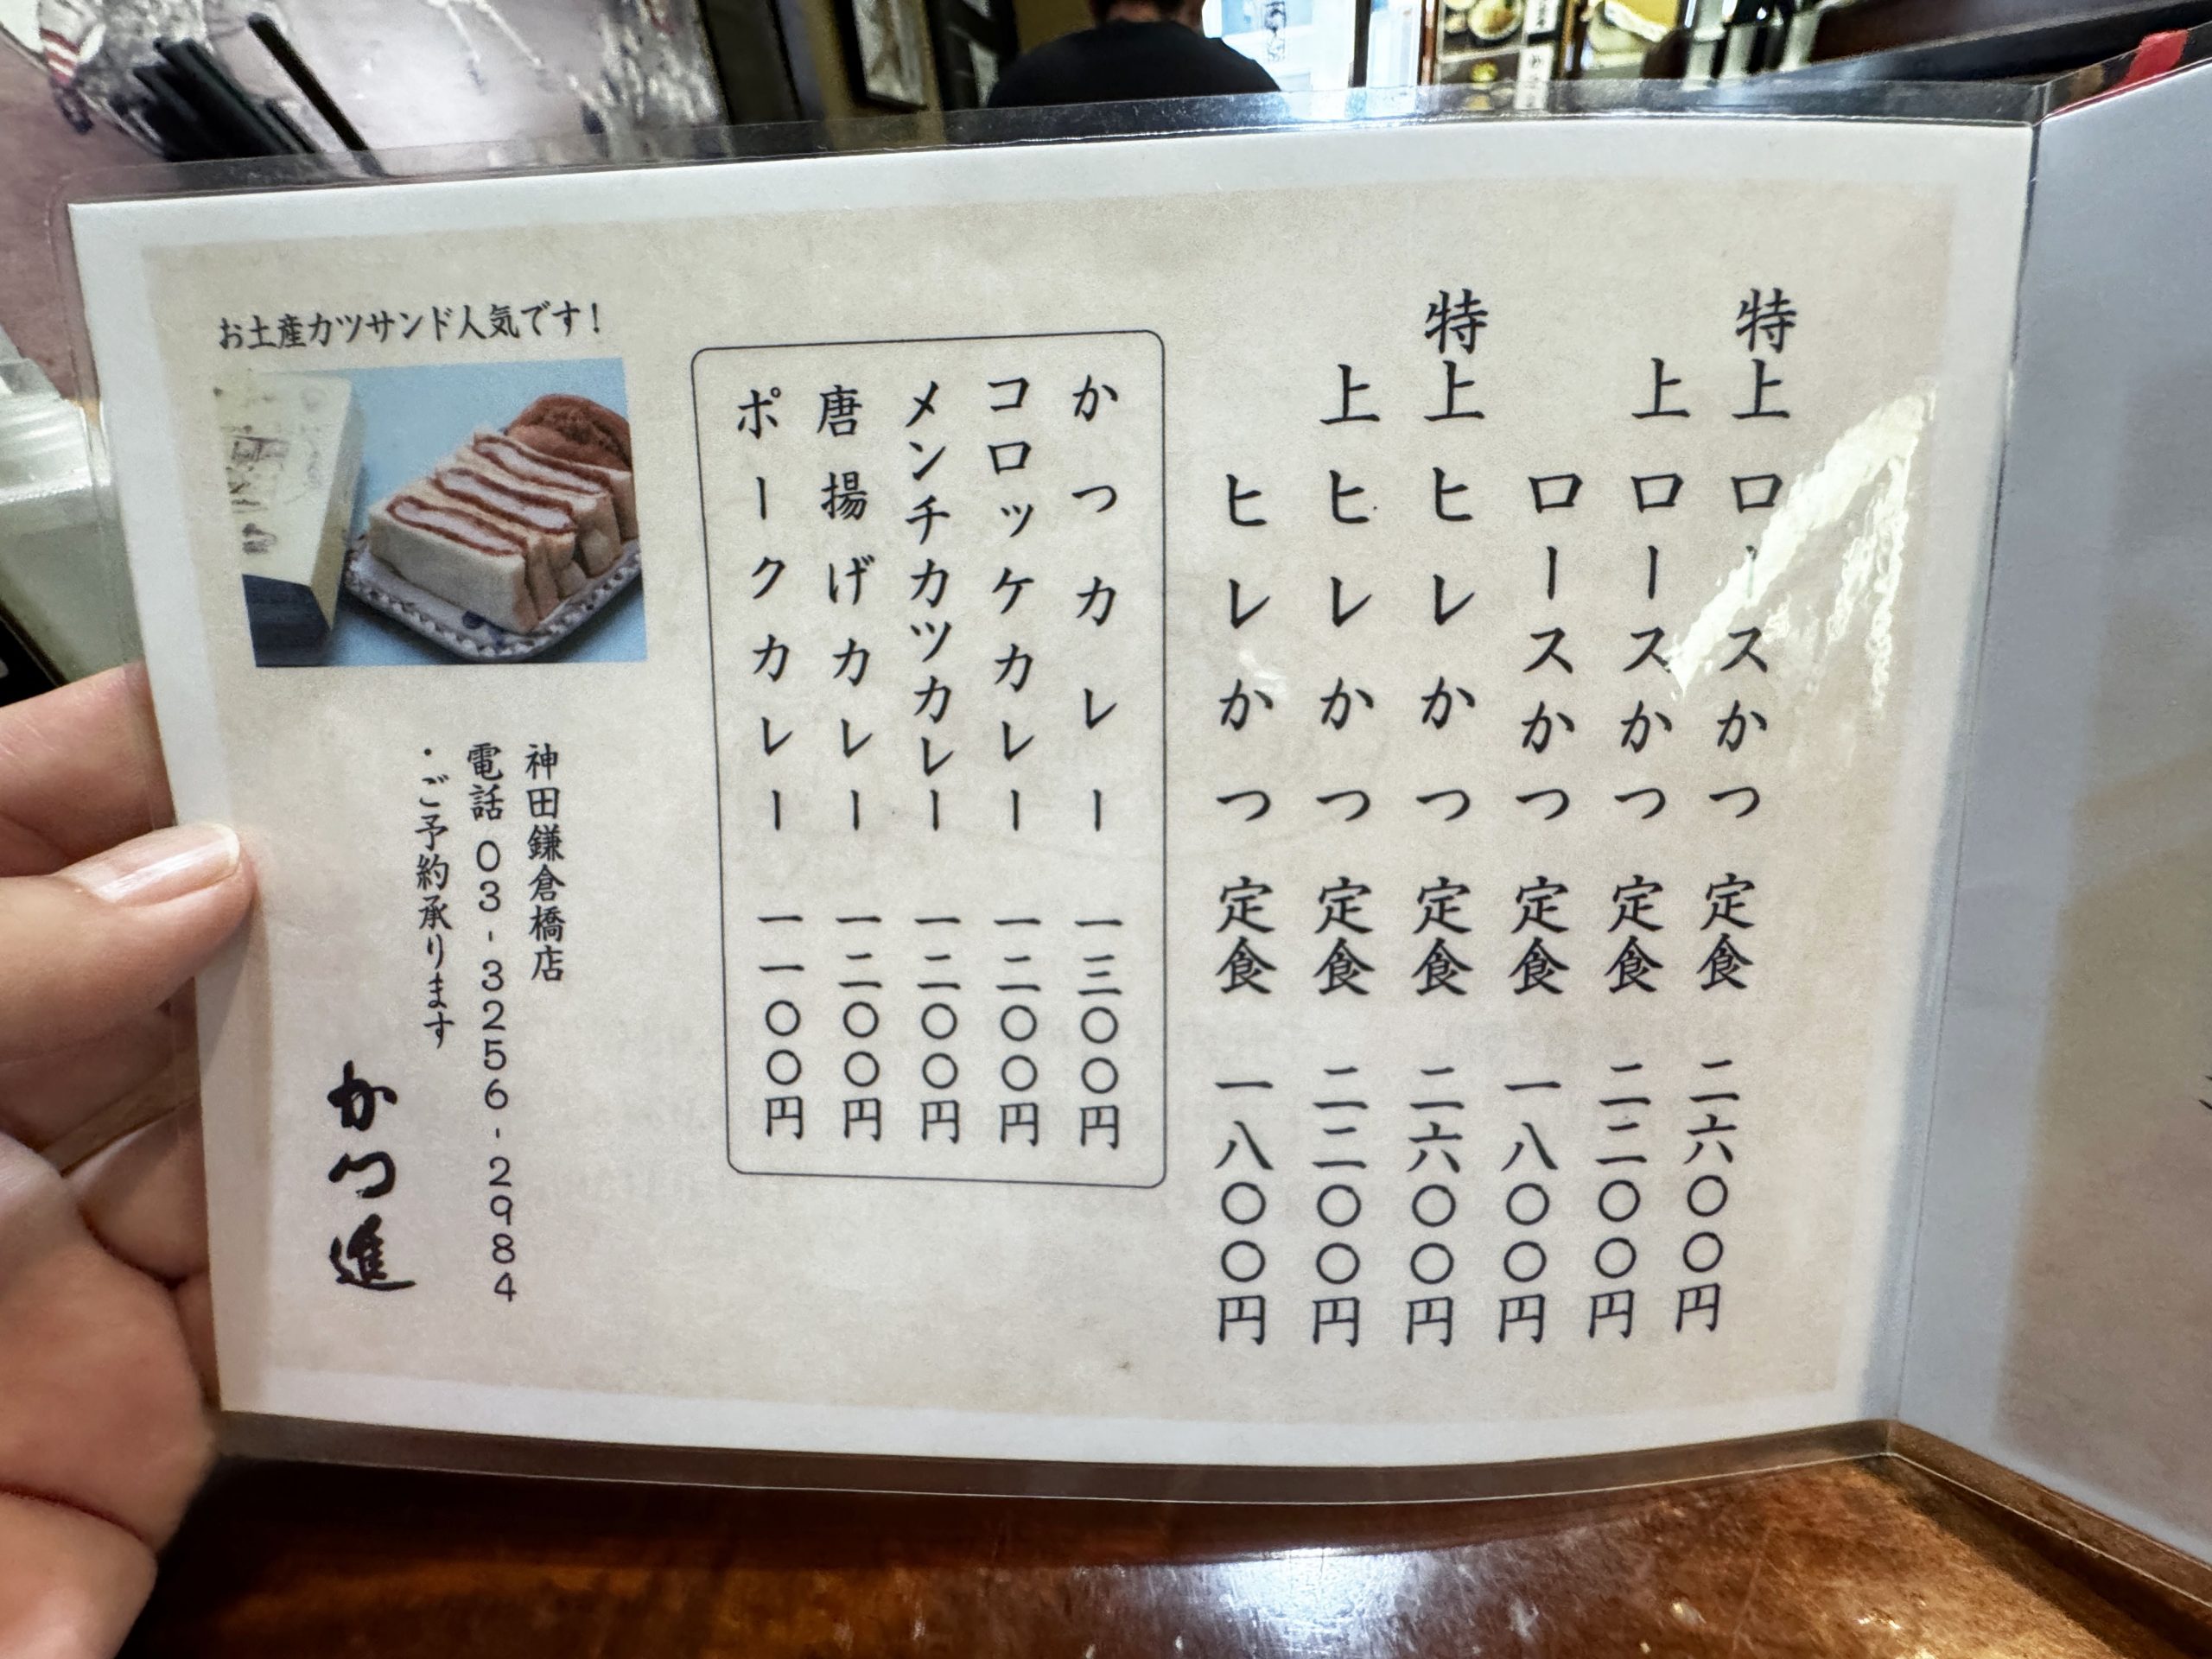 特上ロースかつ定食 二六〇〇円
上ロースかつ定食 二二〇〇円
ロースかつ定食 一八〇〇円
特上ヒレかつ定食 二六〇〇円
上ヒレかつ定食 二二〇〇円
ヒレかつ定食 一八〇〇円
かつカレー 一三〇〇円
コロッケカレー 一二〇〇円
メンチカツカレー 一二〇〇円
唐揚げカレー 一二〇〇円
ポークカレー 一一〇〇円
お土産カツサンド人気です!
神田鎌倉橋店
電話 03-3256-2984
・ご予約承ります
かつ進